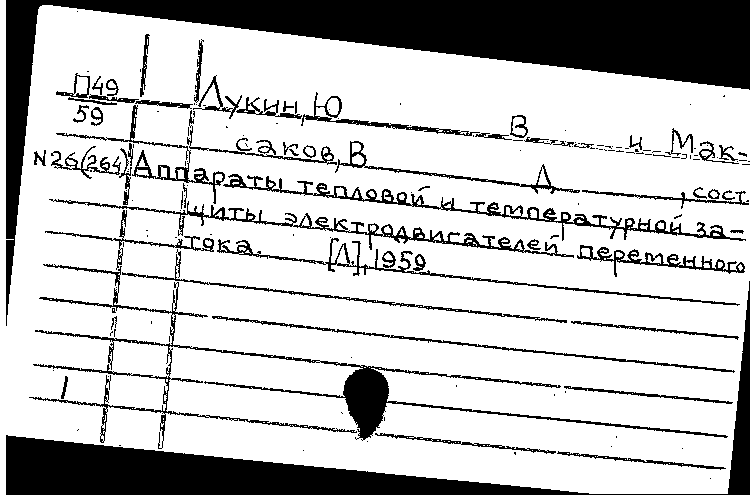 П49
59
Лукин, Ю В и Мак-
саков, В Д , сост.
N26(264) Аппараты тепловой и температурной за-
щиты электродвигателей переменного
тока. [Л], 1959.
1